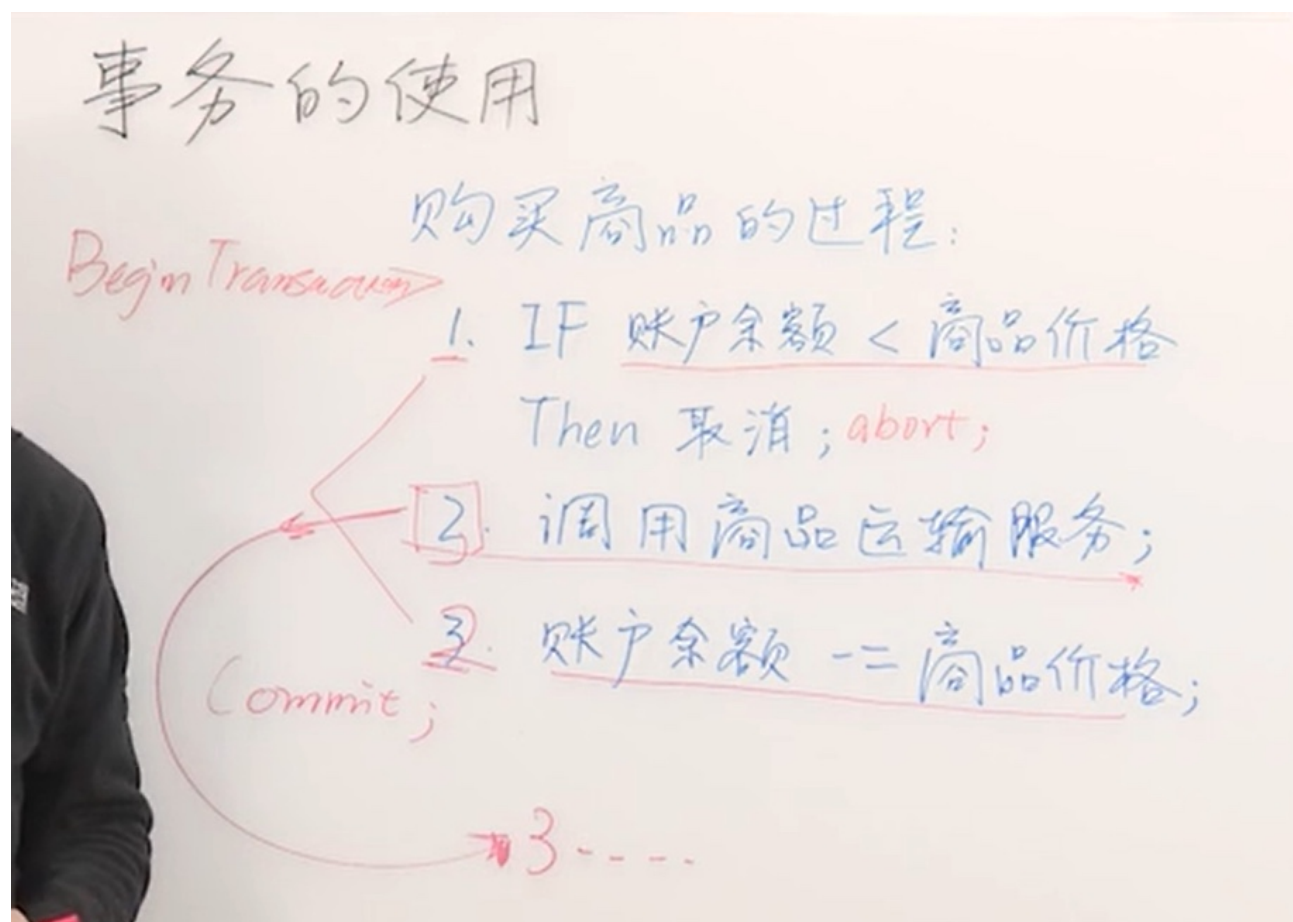 事务的使用
购买商品的过程：
Begin Transaction
1. IF 账户余额 < 商品价格
Then 取消；abort;
2. 调用商品运输服务;
3. 账户余额 -= 商品价格;
Commit;
3----